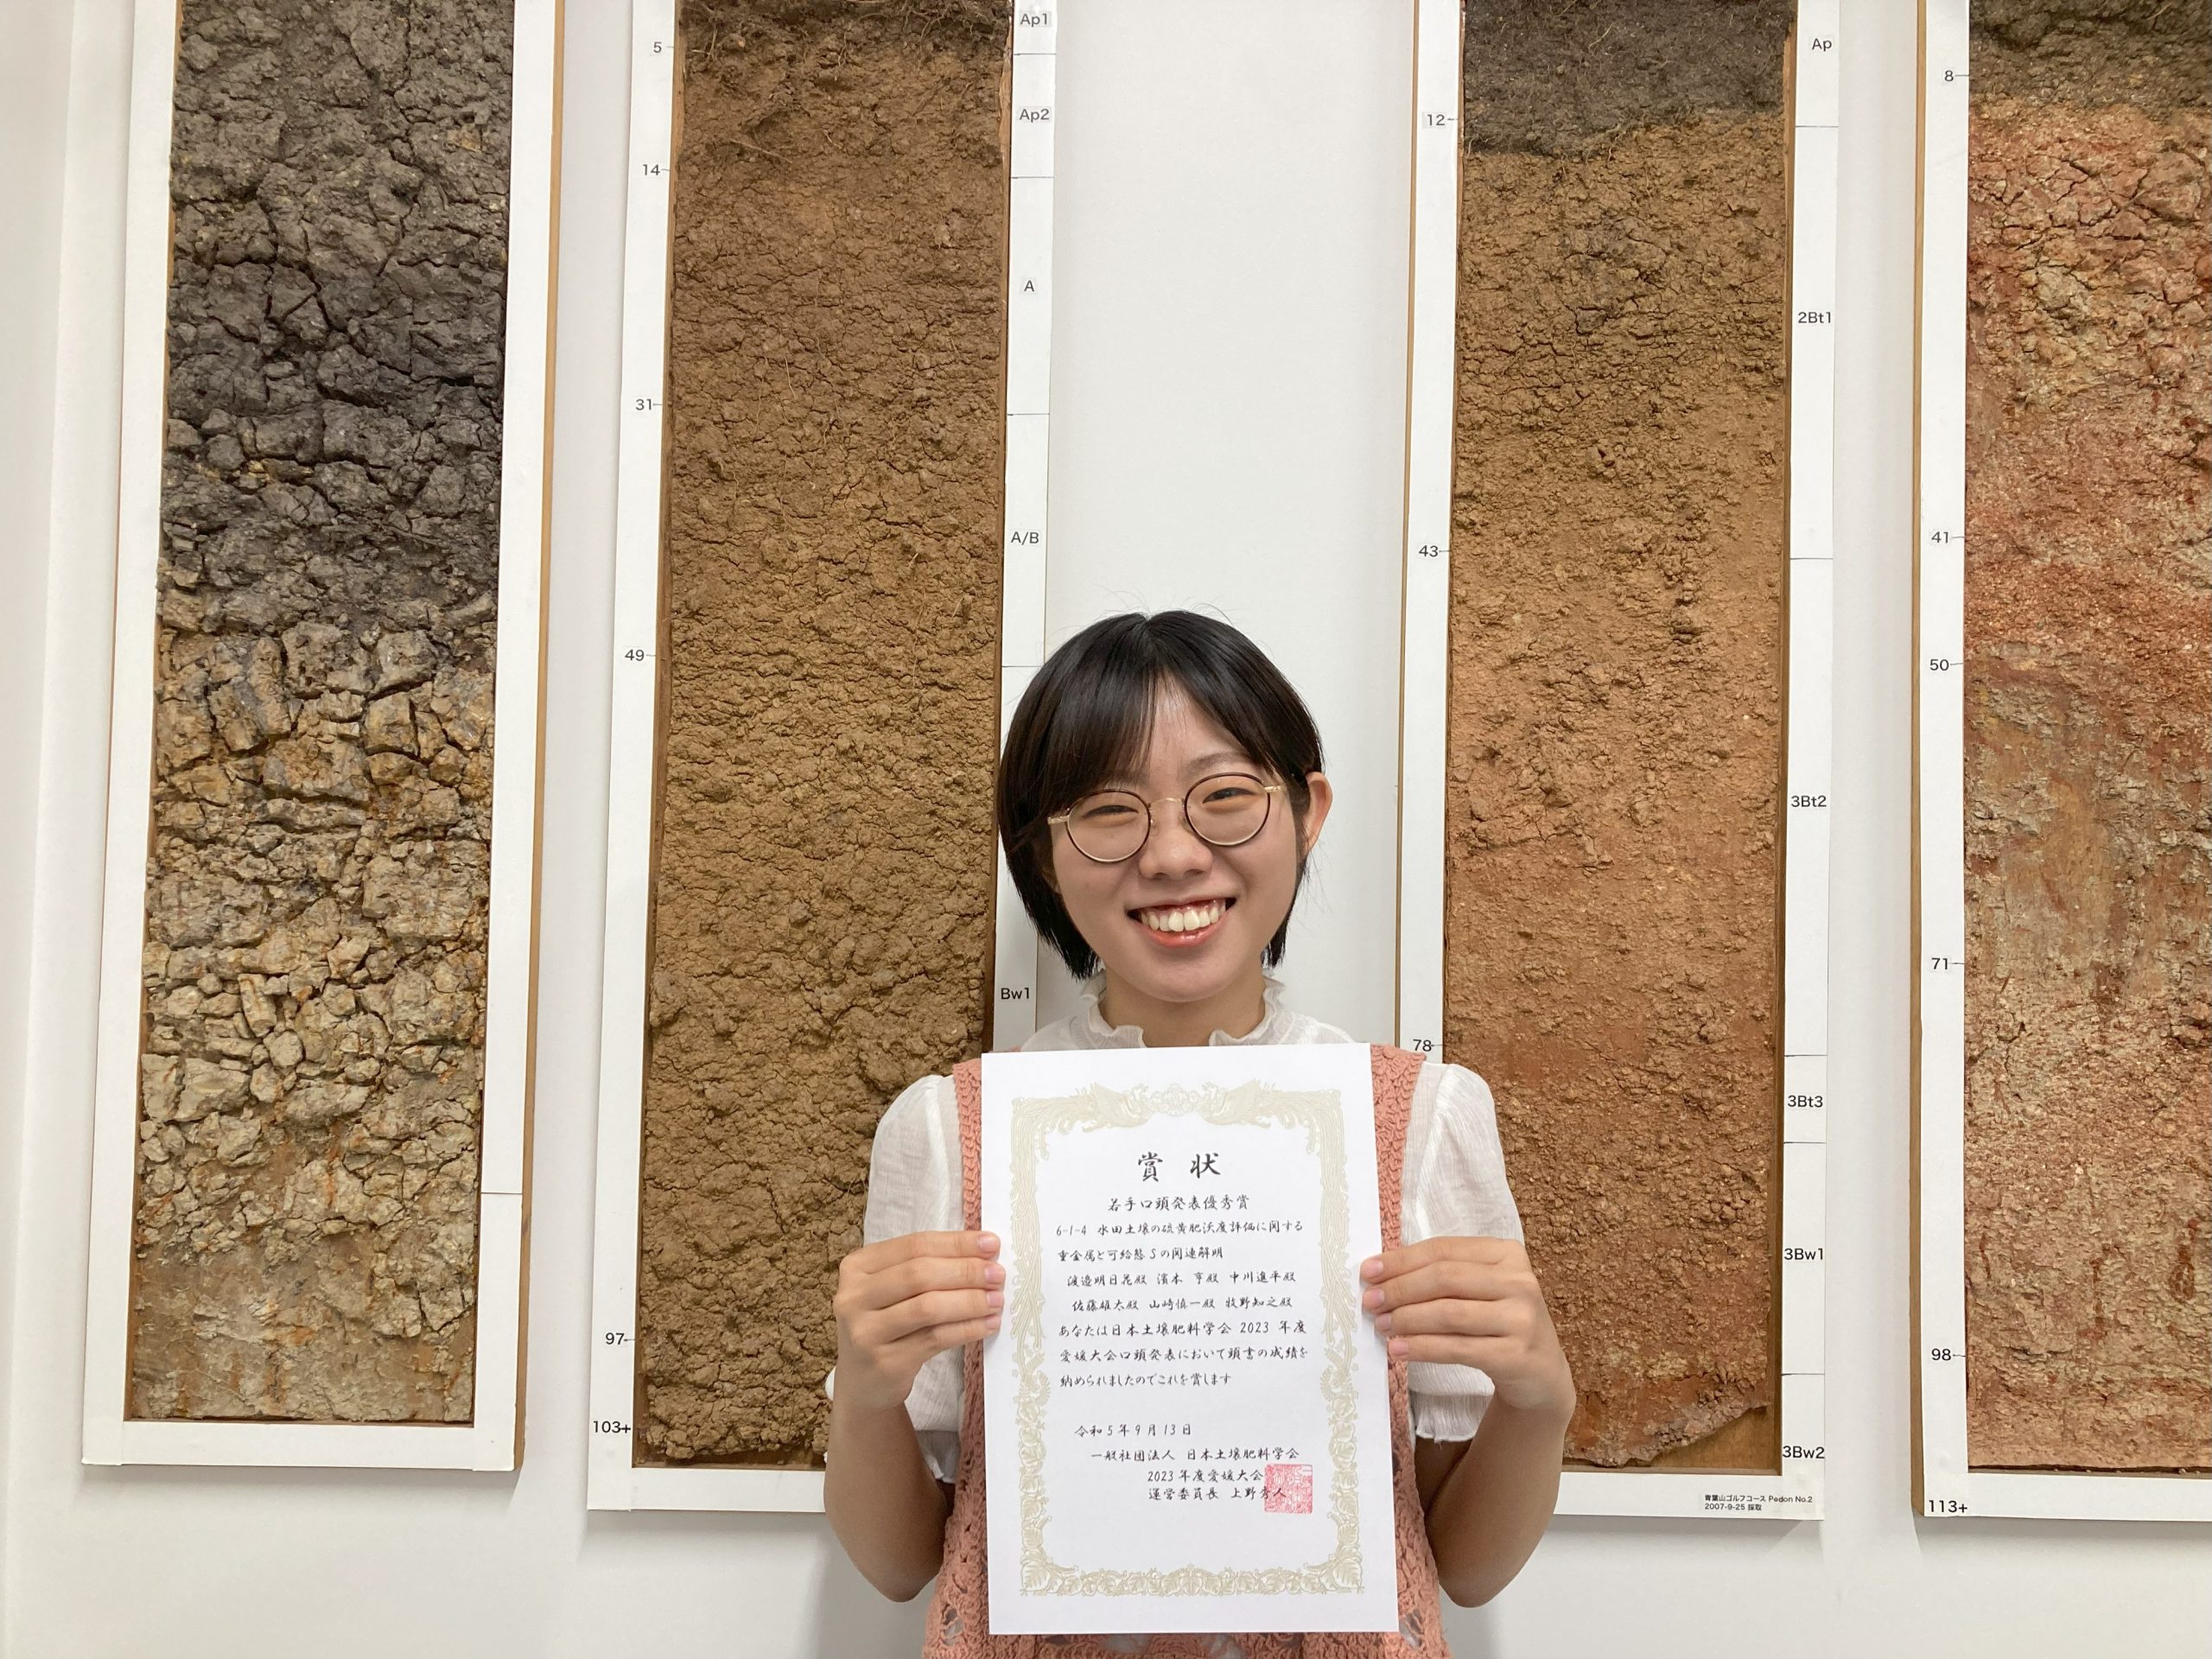 5
14
31
49
97
103+
Ap1
Ap2
A
A/B
Bw1
12
43
78
Ap
2Bt1
3Bt2
3Bt3
3Bw1
3Bw2
青葉山ゴルフコース Pedon No.2
2007-9-25 採取
8
41
50
71
98
113+
賞 状
若手口頭発表優秀賞
6-1-4 水田土壌の硫黄肥沃度評価に関する
重金属と可給態Sの関連解明
渡邉明日花殿 濱本 亨殿 中川進平殿
佐藤雄大殿 山崎慎一殿 牧野知之殿
あなたは日本土壌肥料学会 2023 年度
愛媛大会口頭発表において頭書の成績を
納められましたのでこれを賞します
令和5年9月13日
一般社団法人 日本土壌肥料学会
2023 年度愛媛大会
運営委員長 上野秀人